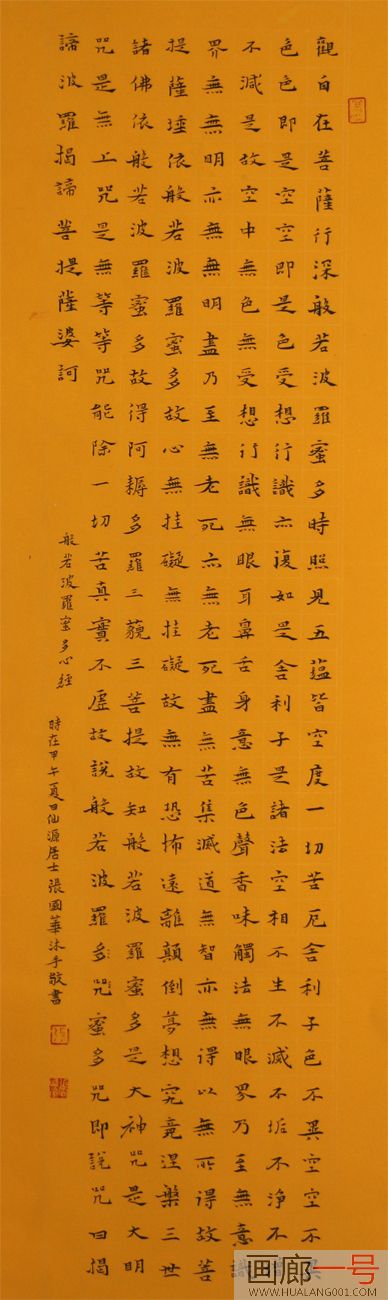 觀自在菩薩行深般若波羅蜜多時照見五蘊皆空度一切苦厄舍利子色不異空空不異
色色即是空空即是色受想行識亦復如是舍利子是諸法空相不生不滅不垢不淨不
不減是故空中無色無受想行識無眼耳鼻舌身意無色聲香味觸法無眼界乃至無意識
界無無明亦無無明盡乃至無老死亦無老死盡無苦集滅道無智亦無得以無所得故菩
提薩埵依般若波羅蜜多故心無挂礙無挂礙故無有恐怖遠離顛倒夢想究竟涅槃三世
諸佛依般若波羅蜜多故得阿耨多羅三藐三菩提故知般若波羅蜜多是大神咒是大明
咒是無上咒是無等等咒能除一切苦真實不虛故說般若波羅多咒蜜多咒即說咒曰揭
諦波羅揭諦菩提薩婆訶
般若波羅蜜多心經
時在甲午夏日仙源居士張國華沐手敬書
画廊一号
WWW.HUALANG001.COM